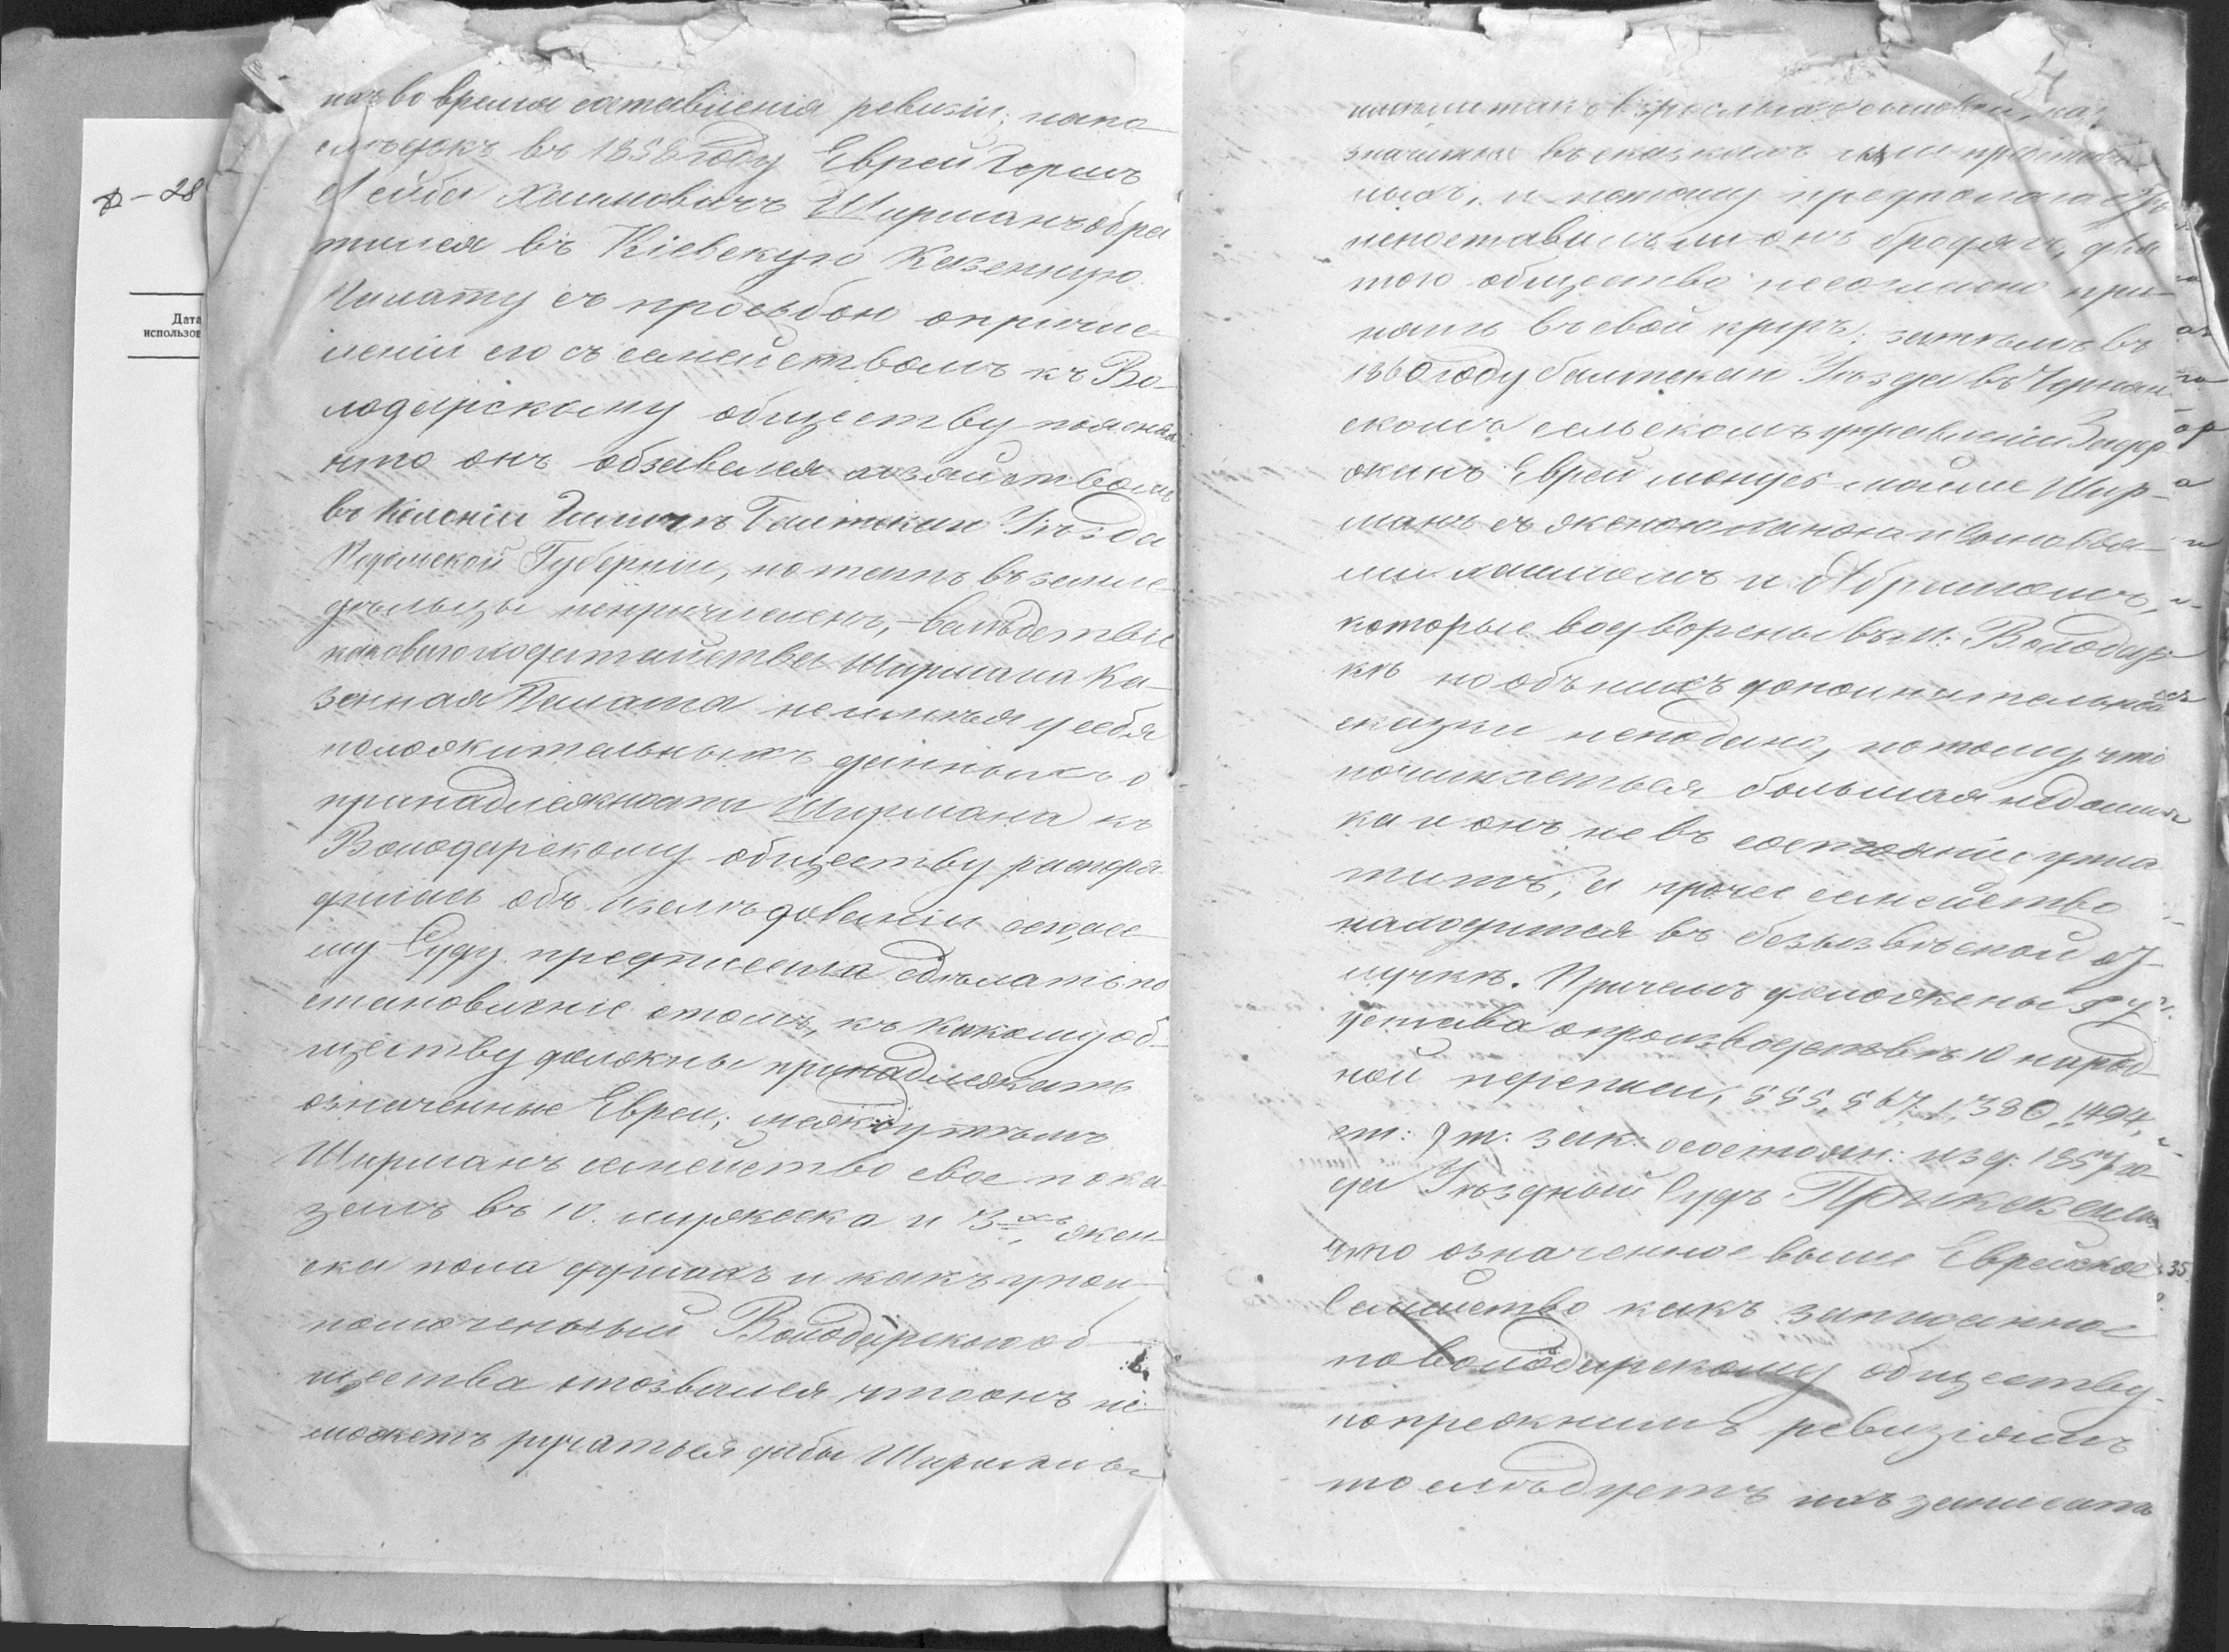 ф-28
Дата
использов
ихъ во время составленія ревизіи; напо
слѣдокъ въ 1858 году Еврей Гершъ
Лейба Хаимовичъ Ширманъ обра
тился въ Кіевскую Казенную
Палату съ просьбою опричис
леніи его съ семействомъ къ Во-
лодарскому обществу поясняя
что онъ обзавелся хозяйствомъ
въ Колоніи Балтскаго Уѣзда
Подольской Губерніи, но тамъ въ земле
дѣльцы непричисленъ, – вслѣдствіе
каковаго ходатайства Ширмана Ка-
зенная Палата неимѣя у себя
положительныхъ данныхъ о
принадлежности Ширмана къ
Володарскому обществу распоря
дилась объ изслѣдованіи сего, а се
му Суду предписала сдѣлать по
становленіе отомъ, къ какому об-
ществу должны принадлежать
означенные Евреи; междутѣмъ
Ширманъ семейство свое пока
залъ въ 10. мужеска и 3хъ жен
ска пола душахъ и какъ упол
номоченный Володарскаго об
щества отозвался, что онъ не
можетъ ручаться дабы Ширманъ
4
имѣлъ такъ взрослыхъ сыновей, каз
значится въ сказкахъ
ныхъ, и потому предполагаетъ
непоставилъ ли онъ бродягъ, для
того общество несогласно при-
нять въ свой кругъ; затѣмъ въ
1860 году Балтскаго Уѣзда въ Чернян
скомъ сельскомъ управленіи Задер
жанъ Еврей Мошко Шир-
манъ съ женою Ханою и сыновья-
ми Хаимомъ и Абрамомъ,
которые водворены въ м. Володар
кѣ но объ нихъ дополнительной
сказки неподано, потому что
почитается большая недоим
ка и онъ не въ состояніи упла
тить, а прочее семейство
находится въ безъизвѣстной от
лучкѣ. Причемъ доложены §
устава о производствѣ 10 народ
ной переписи, 555, 567, 1380, 1494,
ст: 9 т: зак: осостоян: изд: 1857 го
да Уѣздный Судъ Приказали
что означенное выше Еврейское
Семейство какъ записанное
по Володарскому обществу
по прежнимъ ревизіямъ
то слѣдуетъ ихъ записать
35